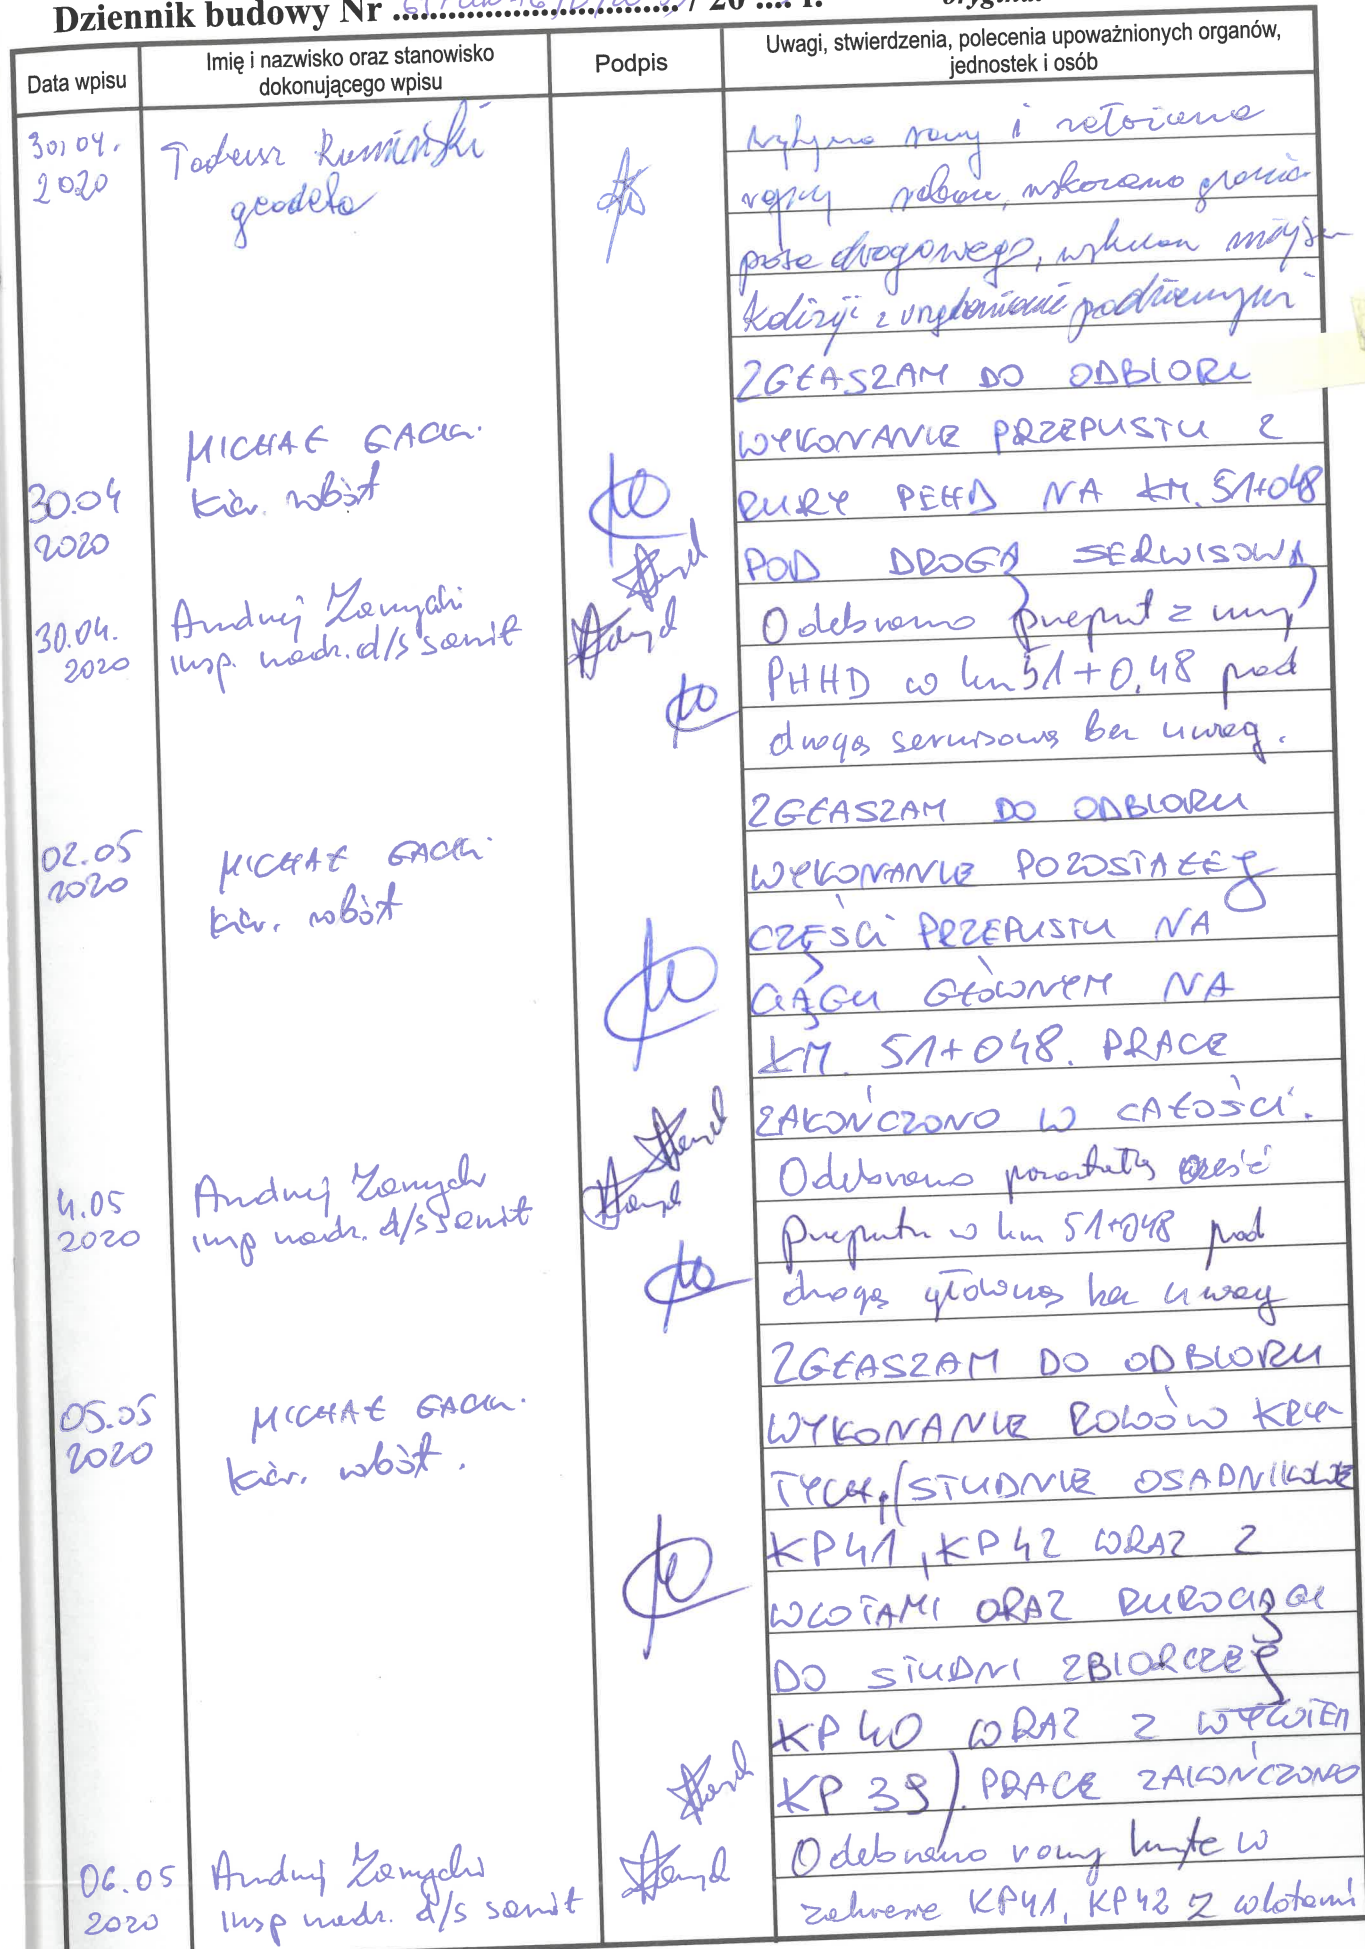 Dziennik budowy Nr ............................... / 20 .... r.
Data wpisu
Imię i nazwisko oraz stanowisko
dokonującego wpisu
Podpis
Uwagi, stwierdzenia, polecenia upoważnionych organów,
jednostek i osób
30.04.
2020
Tadeusz Rumiński
geodeta
rowy i założono
wskazano granice
drogowego,
kolizji z podziemnym
ZGŁASZAM DO ODBIORU
WYKONANIE PRZEPUSTU Z
RURY PEHD NA KM. 51+048
POD DROGĄ SERWISOWĄ
30.04
2020
MICHAŁ GACKI
kier. robót
30.04.
2020
Andrzej
insp. nadz. d/s sanit
Odebrano przepust z rury
PHHD w km 51+0,48 pod
drogą serwisową bez uwag.
02.05
2020
MICHAŁ GACKI
kier. robót
ZGŁASZAM DO ODBIORU
WYKONANIE POZOSTAŁEJ
CZĘŚCI PRZEPUSTU NA
CIĄGU GŁÓWNYM NA
KM. 51+048. PRACE
ZAKOŃCZONO W CAŁOŚCI.
4.05
2020
Andrzej
insp nadz. d/s sanit
Odebrano pozostałą część
przepustu w km 51+048 pod
drogą główną bez uwag
05.05
2020
MICHAŁ GACKI
kier. robót.
ZGŁASZAM DO ODBIORU
WYKONANIE ROWÓW KRY-
TYCH, (STUDNIE OSADNIKOWE
KP41, KP42 WRAZ Z
WLOTAMI ORAZ RUROCIĄGI
DO STUDNI ZBIORCZEJ
KP40 WRAZ Z WYLOTEM
KP 39). PRACE ZAKOŃCZONO
06.05
2020
Andrzej
insp nadz. d/s sanit
Odebrano rowy kryte w
zakresie KP41, KP42 z wlotami